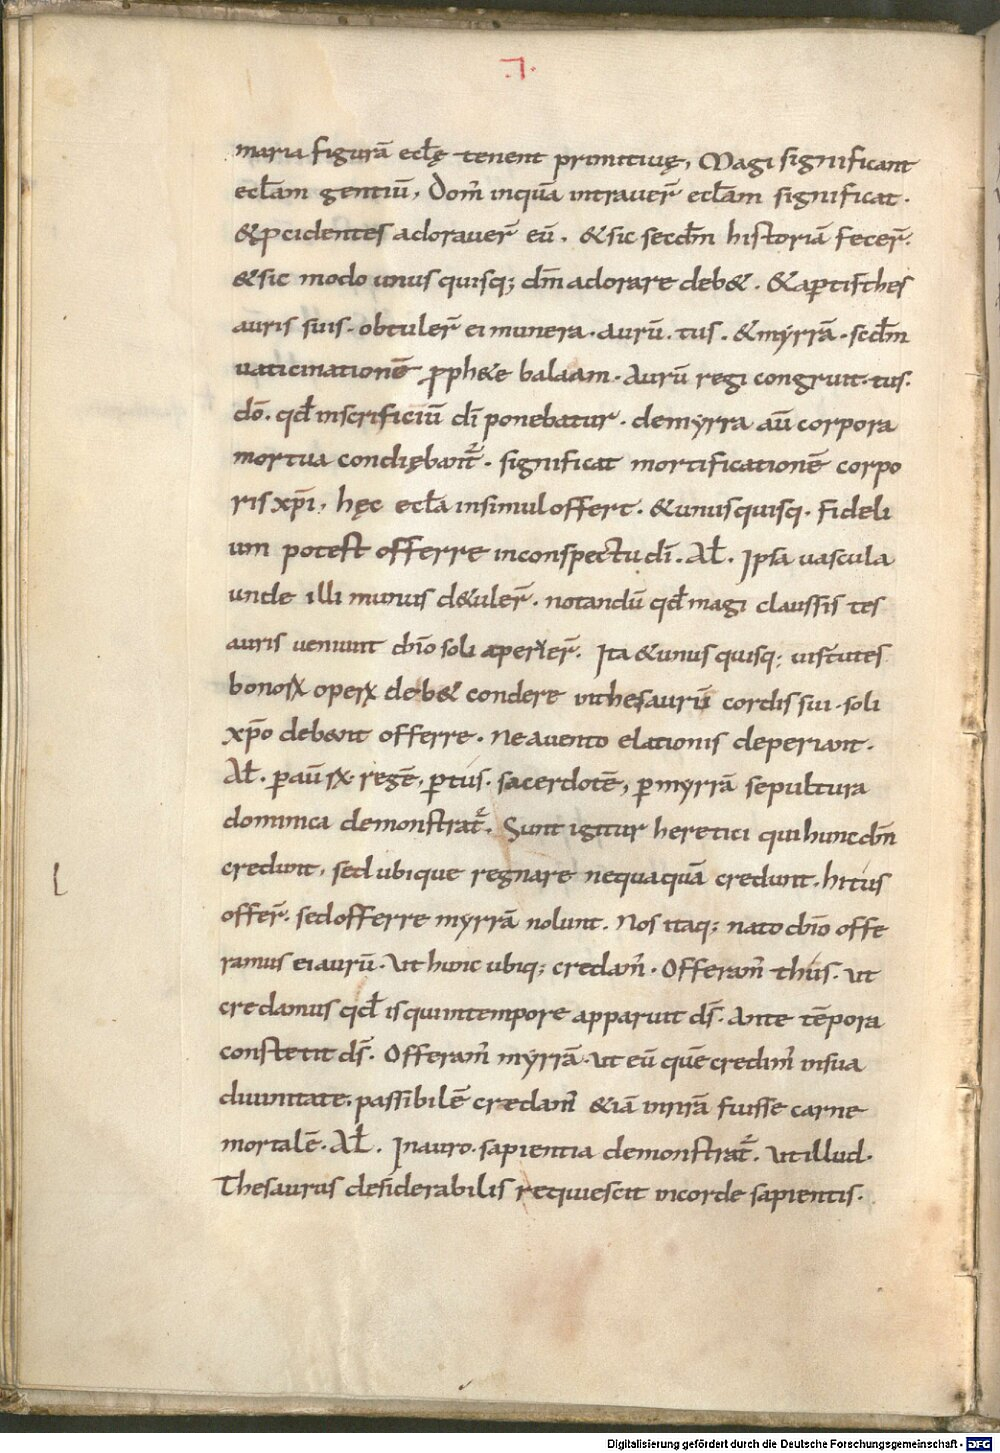 maria figurā eclę tenent primitiuę, Magi significant
eclam gentiū, Dom̄ inquā intrauer̄ eclam significat.
& pcidentes adorauer̄ eū. & sic secdm̄ historiā fecer̄.
& sic modo unus quisq; dm̄ adorare deb&. & aptis thes
auris suis. obtuler̄ ei munera. aurū. tus. & myrrā. scdm̄
uaticinationē pph&e balaam. Aurū regi congruit. tus.
dō. qd̄ inscrificiū dī ponebatur. de myrra aū corpora
mortua condiębant̄. significat mortificationē corpo
ris xp̄i, hęc ecla insimul offert. & unus quisq. fideli
um potest offerre inconspectu dī. Al̄. Ipsa uascula
unde illi munus d&uler̄. notandū qd̄ magi claussis tes
auris ueniunt dn̄o soli aperier̄. Ita & unus quisq; uirtutes
bonoꝝ opeꝝ deb& condere inthesaurū cordis sui. soli
xp̄o deb&nt offerre. Ne auento elationis deperiant.
Al̄. p auꝝ. regē, p tus. sacerdotē, p myrrā sepultura
dominica demonstrat̄. Sunt igitur heretici qui hunc dn̄
credunt, sed ubique regnare nequaquā credunt. hi tus
offer̄. sed offerre myrrā nolunt. Nos itaq; nato dn̄o offe
ramus ei aurū. Ut hunc ubiq; credam̄. Offeram̄ thus. ut
credamus qd̄ is qui intempore apparuit ds̄. Ante tēpora
constetit ds̄. Offeram̄ myrrā. ut eū quē credim̄ insua
diuinitate, passibilē credam̄ &iā inn̄rā fuisse carne
mortalē. Al̄. In auro. sapientia demonstrat̄. Ut illud.
Thesaurus desiderabilis requiescit incorde sapientis.
Digitalisierung gefördert durch die Deutsche Forschungsgemeinschaft - DFG